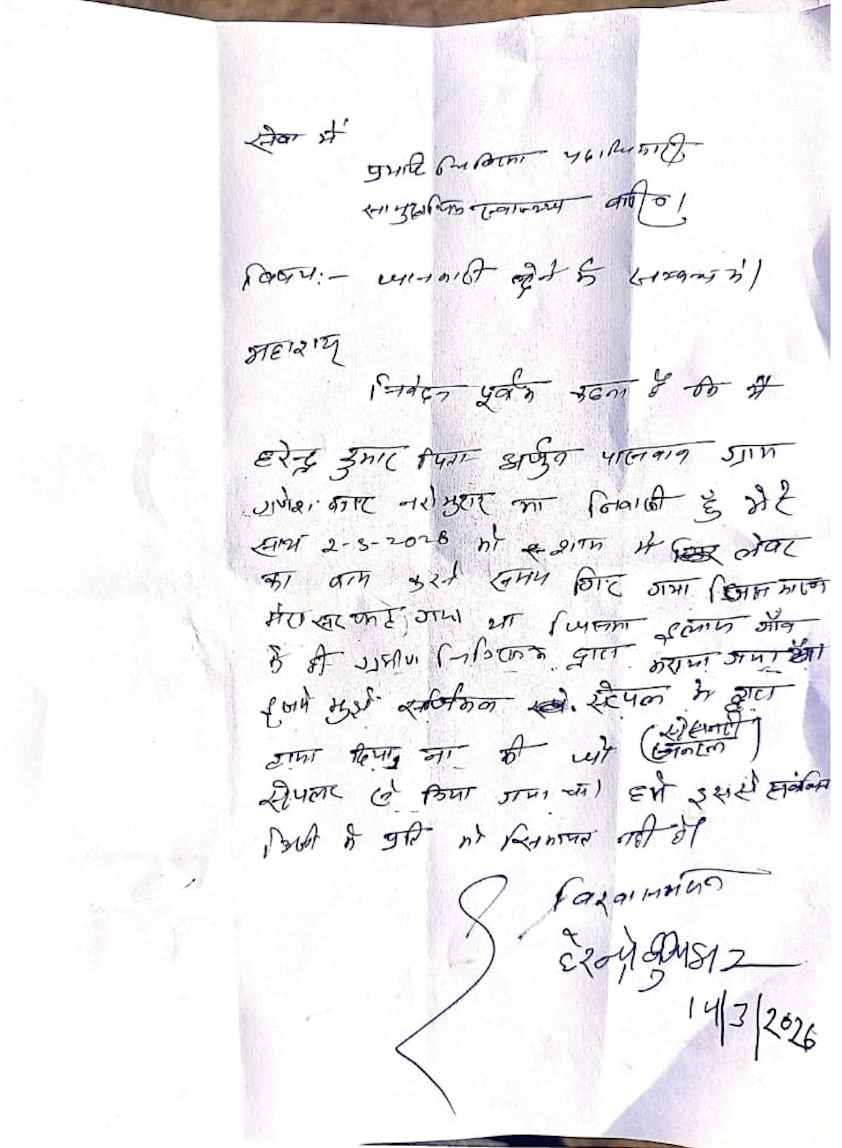 सेवा में
प्रभारी चिकित्सा पदाधिकारी
सामुदायिक स्वास्थ्य
विषय:- जानकारी देने के सम्बन्ध में।
महाशय
निवेदन पूर्वक कहना है कि मैं
हरेन्द्र कुमार पिता अर्जुन पासवान ग्राम
गणेश का निवासी हूँ मेरे
साथ 2-3-2026 को शाम में लेबर
का काम करते समय गिर गया
मेरा सर फट गया था जिसका इलाज गाँव
के ही ग्रामीण चिकित्सक द्वारा कराया गया था
मुझे सर्जिकल स्टेपल के द्वारा
दिया ना की
स्टेपलर से किया गया था। हमें इससे संबंधित
किसी के प्रति को सिकायत नहीं है।
विश्वासभाजन
हरेन्द्र कुमार
14/3/2026